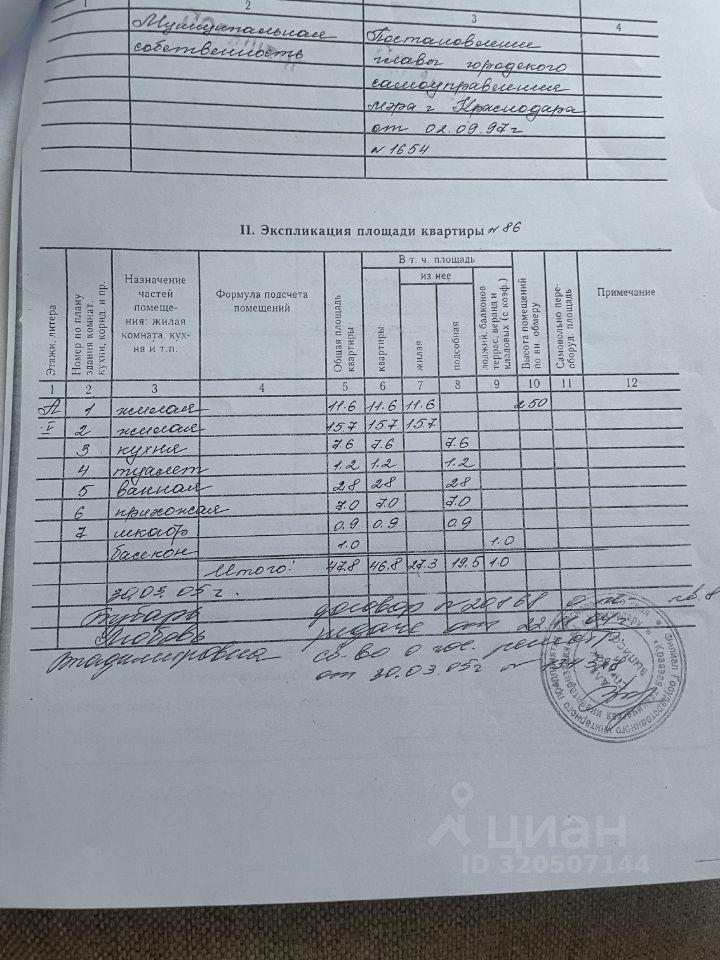 1 2 3 4
Муниципальная собственность
Постановление
главы городского
самоуправления
мэра г Краснодара
от 02.09.97г
№1654
II. Экспликация площади квартиры №86
Этажи, литера
Номер по плану здания комнат. кухни, корид. и пр.
Назначение частей помеще- ния: жилая комната. кух- ня и т.п.
Формула подсчета помещений
Общая площадь квартиры
В т. ч. площадь
квартиры
из нее
жилая
подсобная
лоджий, балконов террас, веранд и кладовых (с коэф.)
Высота помещений по вн. обмеру
Самовольно пере- оборуд. площадь
Примечание
1 2 3 4 5 6 7 8 9 10 11 12
А 1 жилая 11.6 11.6 11.6 2.50
I 2 жилая 15.7 15.7 15.7
3 кухня 7.6 7.6 7.6
4 туалет 1.2 1.2 1.2
5 ванная 2.8 2.8 2.8
6 прихожая 7.0 7.0 7.0
7 шкаф 0.9 0.9 0.9
балкон 1.0 1.0
Итого: 47.8 46.8 27.3 19.5 1.0
30.03.05г.
договор №20868 о пе кв.8
Любовь редаче от
Владимировна св-во о гос.
от 30.03.05г №
Филиал Государственного
циан
ID 320507144